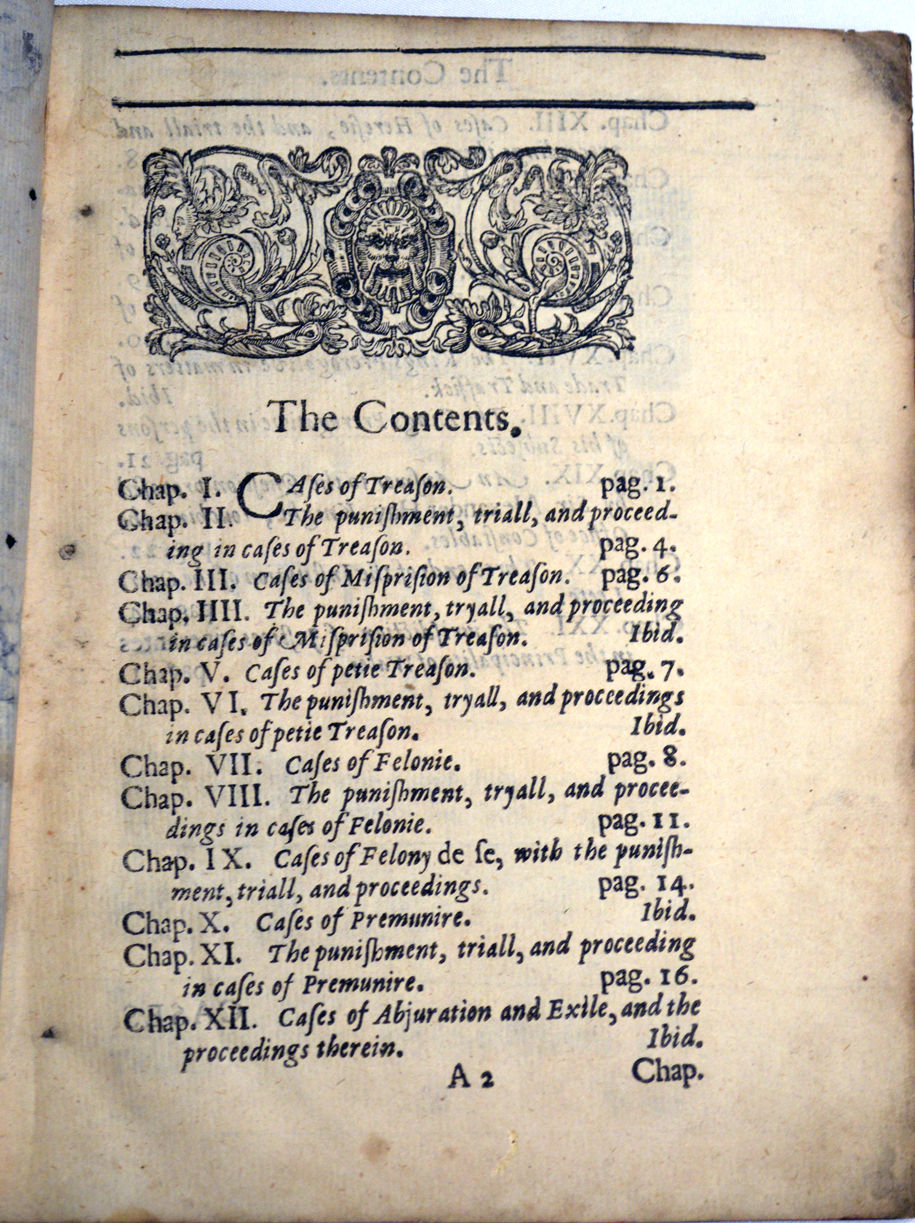 The Contents.
Chap. I. CAſes of Treaſon. pag. 1.
Chap. II. The puniſhment, triall, and proceed-
ing in caſes of Treaſon. pag. 4.
Chap. III. Caſes of Miſpriſion of Treaſon. pag. 6.
Chap. IIII. The puniſhment, tryall, and proceeding
in caſes of Miſpriſion of Treaſon. Ibid.
Chap. V. Caſes of petie Treaſon. pag. 7.
Chap. VI. The puniſhment, tryall, and proceedings
in caſes of petie Treaſon. Ibid.
Chap. VII. Caſes of Felonie. pag. 8.
Chap. VIII. The puniſhment, tryall, and procee-
dings in caſes of Felonie. pag. 11.
Chap. IX. Caſes of Felony de ſe, with the puniſh-
ment, triall, and proceedings. pag. 14.
Chap. X. Caſes of Premunire. Ibid.
Chap. XI. The puniſhment, triall, and proceeding
in caſes of Premunire. pag. 16.
Chap. XII. Caſes of Abjuration and Exile, and the
proceedings therein. Ibid.
A 2 Chap.